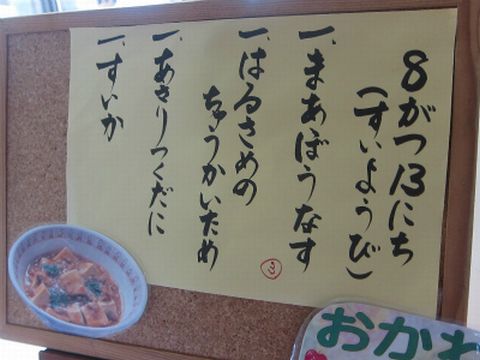 8がつ13にち
(すいようび)
一、まあぼうなす
一、はるさめの
ちゅうかいため
一、あさりつくだに
一、すいか
おかわ